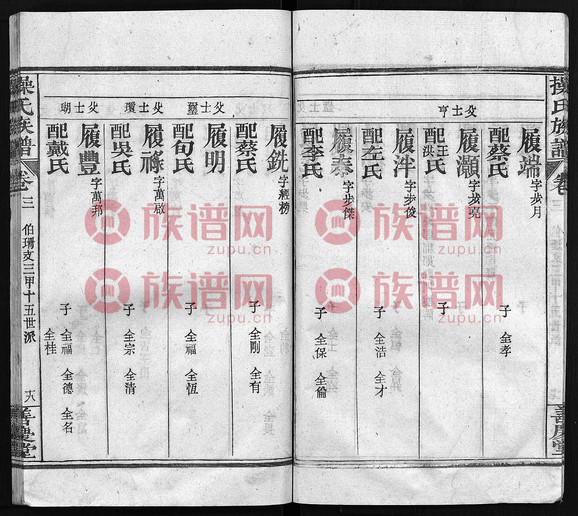 操氏族譜
卷三
善慶堂
父士亨
履端 字步月
配蔡氏
子 全孝
履灝 字步亮
配王洪氏
子
履泮 字步俊
配左氏
子 全浩 全才
履泰 字步傑
配李氏
子 全保 全倫
履銑 字經榜
配蔡氏
子 全剛 全有
父士璽
履明
配旬氏
子 全福 全恆
父士瓚
履祿 字萬啟
配吳氏
子 全宗 全清
父士瑚
履豐 字萬邦
配戴氏
子 全福 全德 全名
全桂
操氏族譜
卷三
伯瑨支三甲十五世派
善慶堂
族谱网
zupu.cn
族谱网
zupu.cn
族谱网
zupu.cn
族谱网
zupu.cn
族谱网
zupu.cn
族谱网
zupu.cn